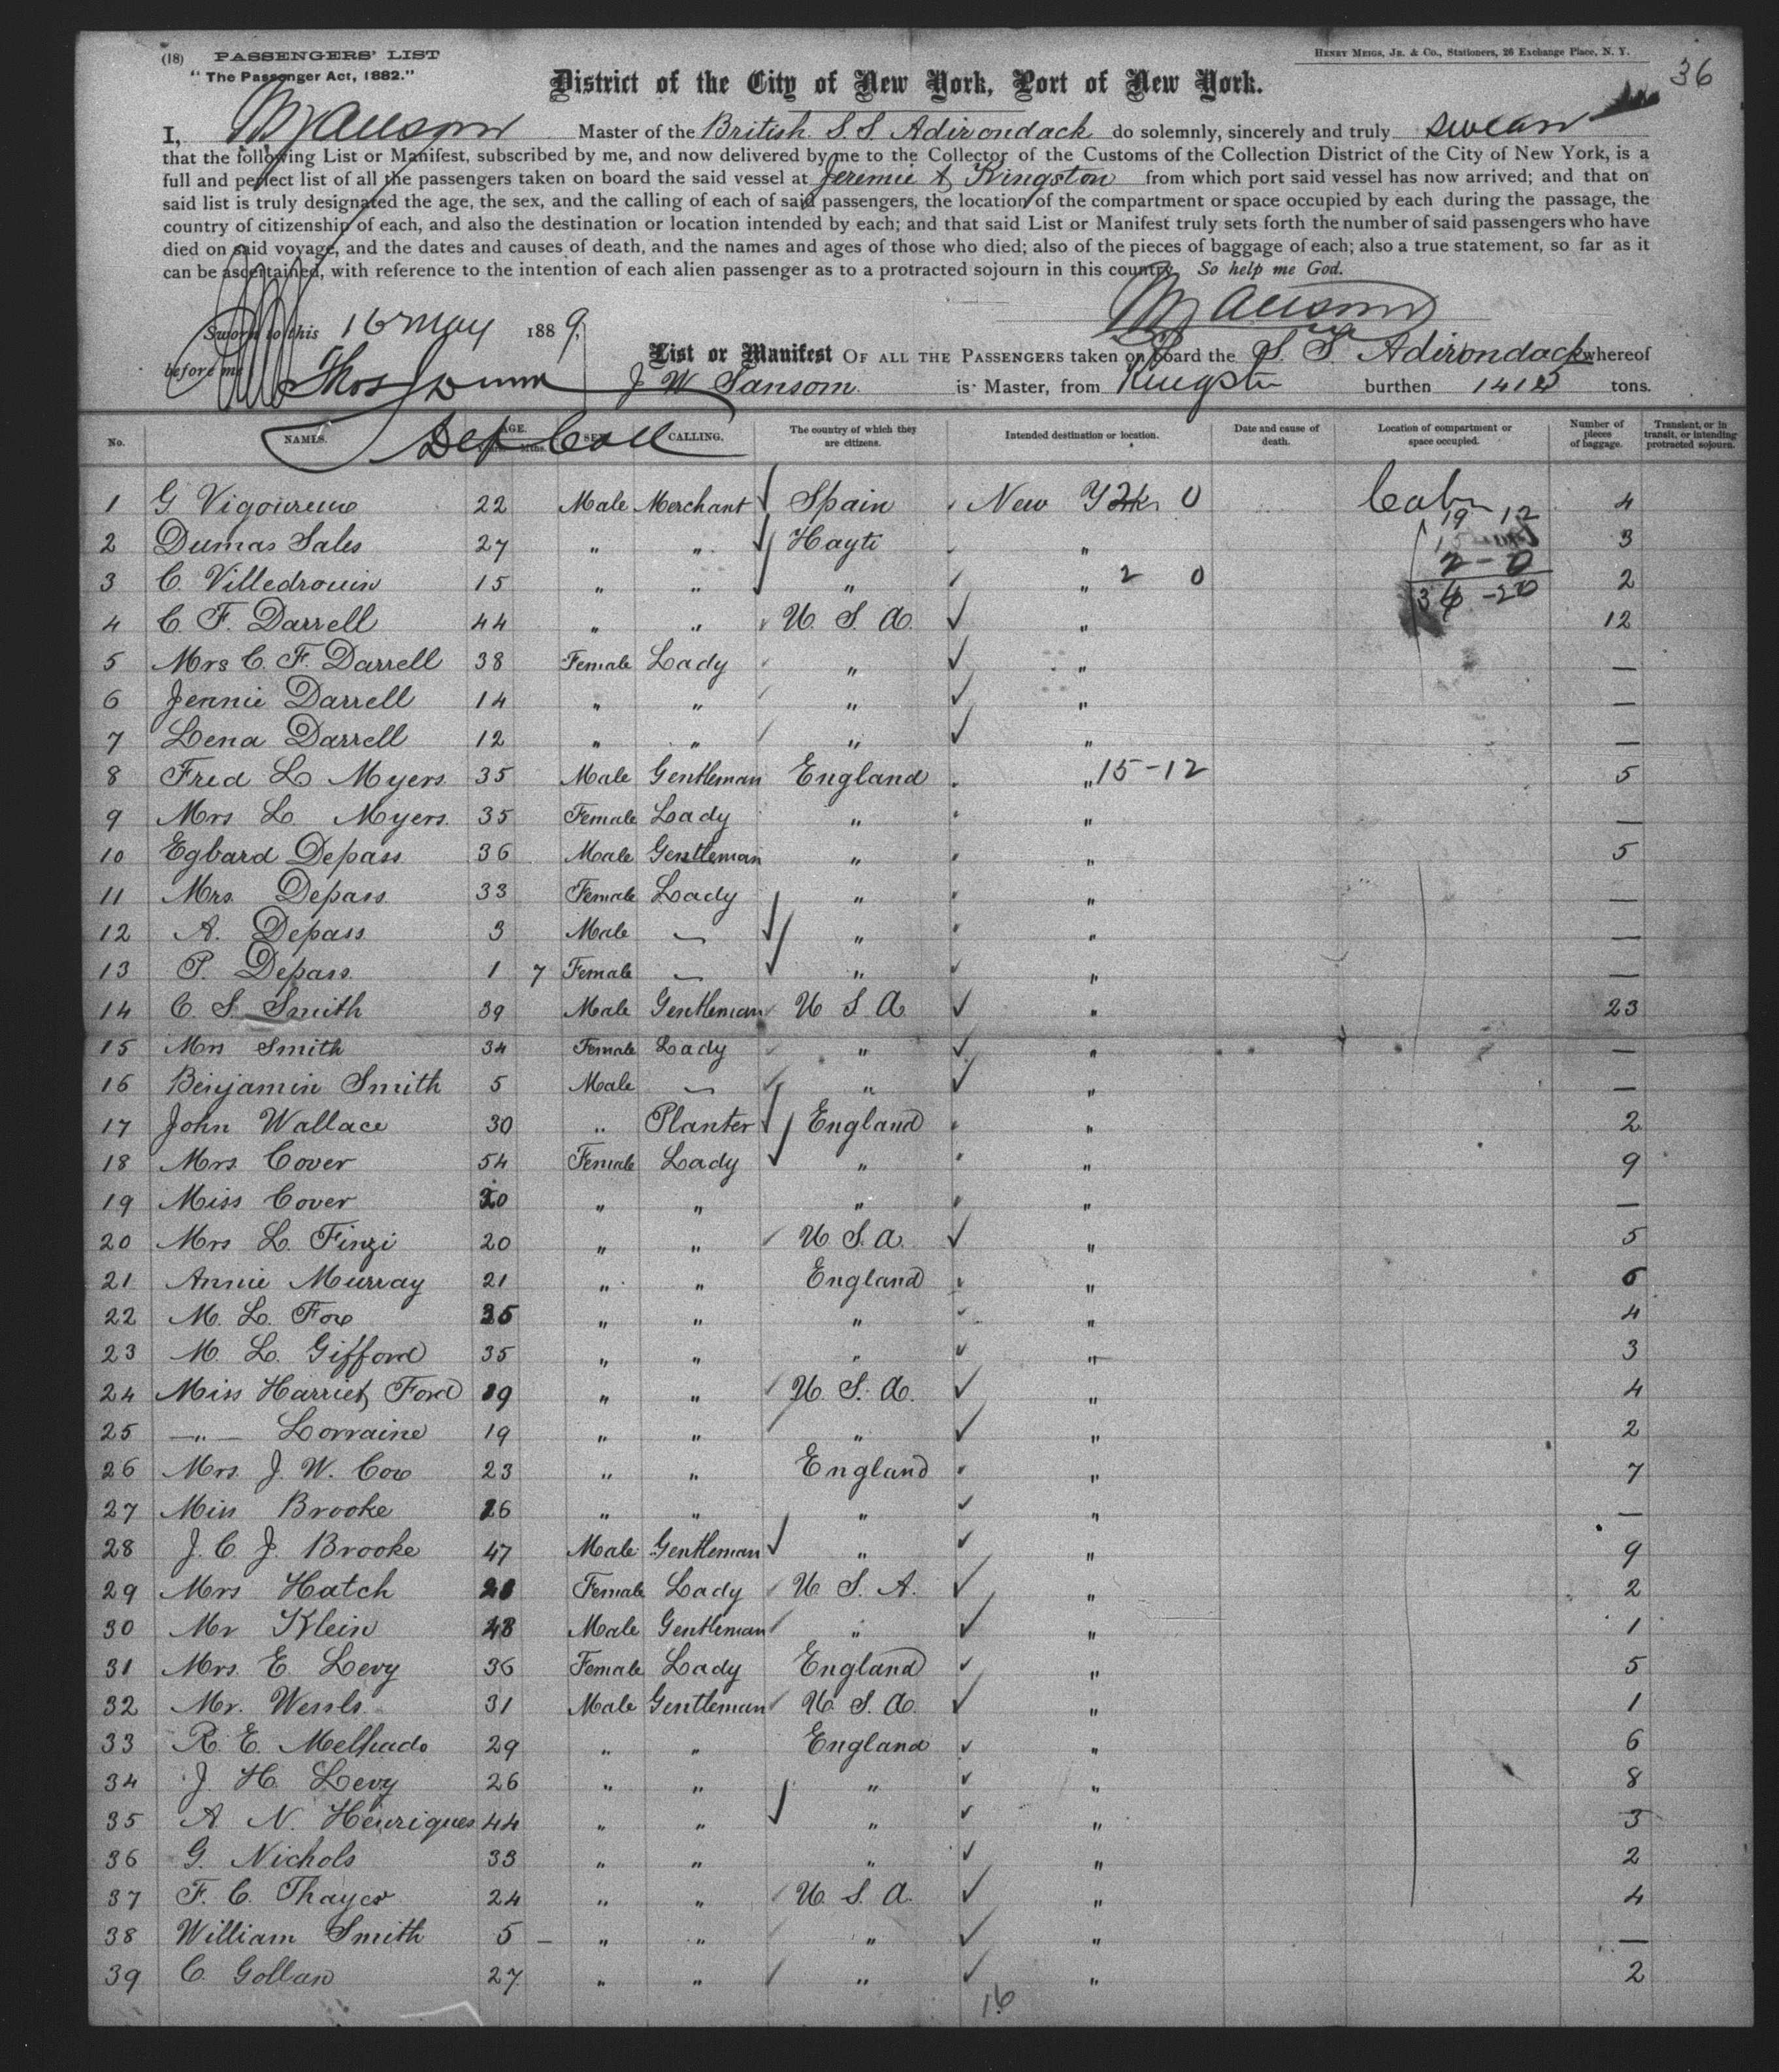 (18) PASSENGERS' LIST
HENRY MEIGS, JR. & CO., Stationers, 26 Exchange Place, N. Y.
36
"The Passenger Act, 1882."
District of the City of New York, Port of New York.
I, Master of the British S.S Adirondack do solemnly, sincerely and truly swear
that the following List or Manifest, subscribed by me, and now delivered by me to the Collector of the Customs of the Collection District of the City of New York, is a
full and perfect list of all the passengers taken on board the said vessel at Jeremie & Kingston from which port said vessel has now arrived; and that on
said list is truly designated the age, the sex, and the calling of each of said passengers, the location of the compartment or space occupied by each during the passage, the
country of citizenship of each, and also the destination or location intended by each; and that said List or Manifest truly sets forth the number of said passengers who have
died on said voyage, and the dates and causes of death, and the names and ages of those who died; also of the pieces of baggage of each; also a true statement, so far as it
can be ascertained, with reference to the intention of each alien passenger as to a protracted sojourn in this country. So help me God.
Sworn to this 16 May 1889,
before me Thos Dunn
Dep Coll
List or Manifest OF ALL THE PASSENGERS taken on board the S. S. Adirondack whereof
J W Sansom is Master, from Kingston burthen tons.
No. NAMES. AGE. Years. Mths. SEX. CALLING. The country of which they are citizens. Intended destination or location. Date and cause of death. Location of compartment or space occupied. Number of pieces of baggage. Transient, or in transit, or intending protracted sojourn.
1 G 22 Male Merchant Spain New York 0 Cabin 4
19 - 12
2 Dumas Sales 27 " " Hayti " 3
2 - 0
3 C. Villedrouin 15 " " " " 2 0 2
36 - 20
4 C. F. Darrell 44 " " U. S. A. " 12
5 Mrs C. F. Darrell 38 Female Lady " " —
6 Jennie Darrell 14 " " " " —
7 Lena Darrell 12 " " " " —
8 Fred L Myers 35 Male Gentleman England " 15-12 5
9 Mrs L. Myers 35 Female Lady " " —
10 Egbard Depass 36 Male Gentleman " " 5
11 Mrs. Depass 33 Female Lady " " —
12 A. Depass 3 Male — " " —
13 P. Depass 1 7 Female — " " —
14 C. S. Smith 39 Male Gentleman U S A " 23
15 Mrs Smith 34 Female Lady " " —
16 Benjamin Smith 5 Male — " " —
17 John Wallace 30 " Planter England " 2
18 Mrs. Cover 54 Female Lady " " 9
19 Miss Cover 20 " " " " —
20 Mrs L. Finzi 20 " " U. S. A. " 5
21 Annie Murray 21 " " England " 6
22 M. L. Fox 35 " " " " 4
23 M. L. Gifford 35 " " " " 3
24 Miss Harriet Ford 19 " " U. S. A. " 4
25 —"— Lorraine 19 " " " " 2
26 Mrs. J. W. Cox 23 " " England " 7
27 Miss Brooke 26 " " " " —
28 J. C. J. Brooke 47 Male Gentleman " " 9
29 Mrs Hatch Female Lady U. S. A. " 2
30 Mr Klein 48 Male Gentleman " " 1
31 Mrs. E. Levy 36 Female Lady England " 5
32 Mr. 31 Male Gentleman U. S. A. " 1
33 R. E. Melhado 29 " " England " 6
34 J. H. Levy 26 " " " " 8
35 A. N. Henriques 44 " " " " 3
36 G. Nichols 33 " " " " 2
37 F. C. Thayer 24 " " U. S. A. " 4
38 William Smith 5 — " " " " —
39 C. Gollan 27 " " " " 2
16